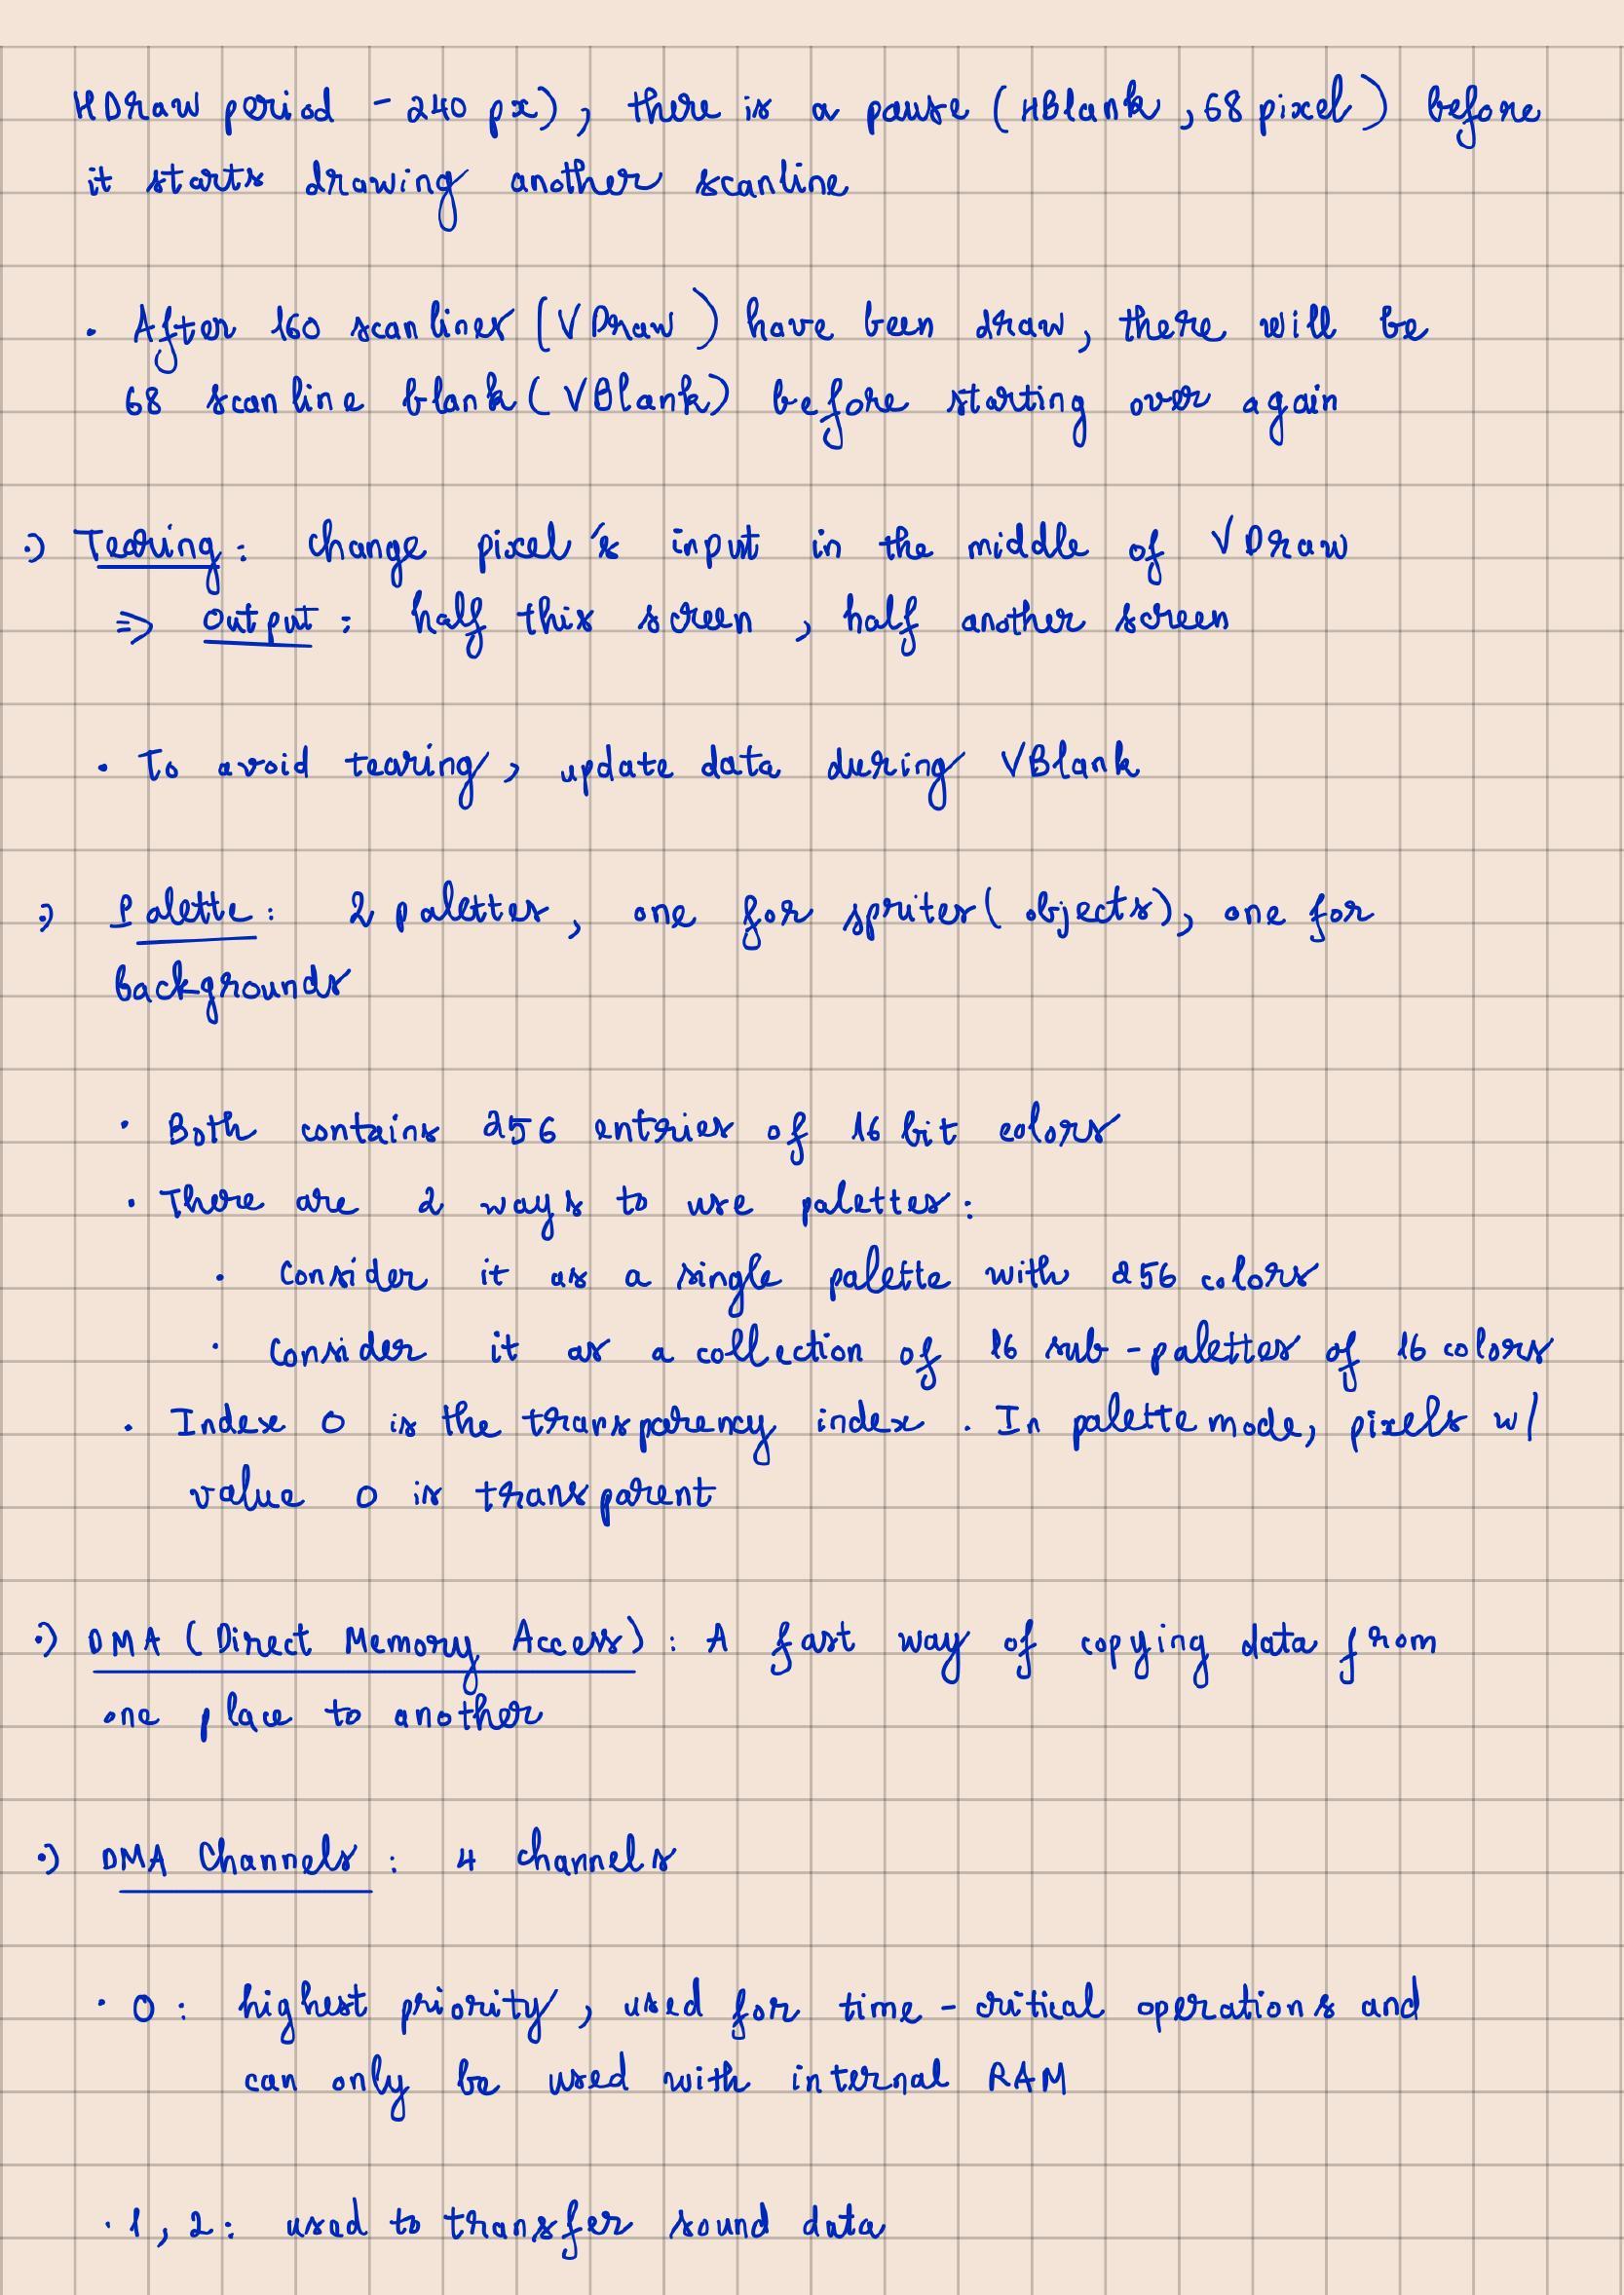 HDraw period - 240 px), there is a pause (HBlank, 68 pixel) before
it starts drawing another scanline
• After 160 scanlines (VDraw) have been draw, there will be
68 scanline blank (VBlank) before starting over again
•) Tearing: change pixel's input in the middle of VDraw
=> Output: half this screen, half another screen
• To avoid tearing, update data during VBlank
•) Palette: 2 palettes, one for sprites (objects), one for
backgrounds
• Both contains 256 entries of 16 bit colors
• There are 2 ways to use palettes:
• Consider it as a single palette with 256 colors
• Consider it as a collection of 16 sub-palettes of 16 colors
• Index 0 is the transparency index. In palette mode, pixels w/
value 0 is transparent
•) DMA (Direct Memory Access): A fast way of copying data from
one place to another
•) DMA Channels: 4 channels
• 0: highest priority, used for time-critical operations and
can only be used with internal RAM
• 1, 2: used to transfer sound data